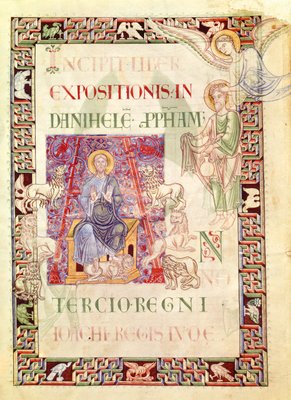 INCIPIT LIBER
EXPOSITIONIS IN
DANIHELĒ PP̄HAM·
A N
NO
TERCIO REGNI
IOACHĪ REGIS IVDE